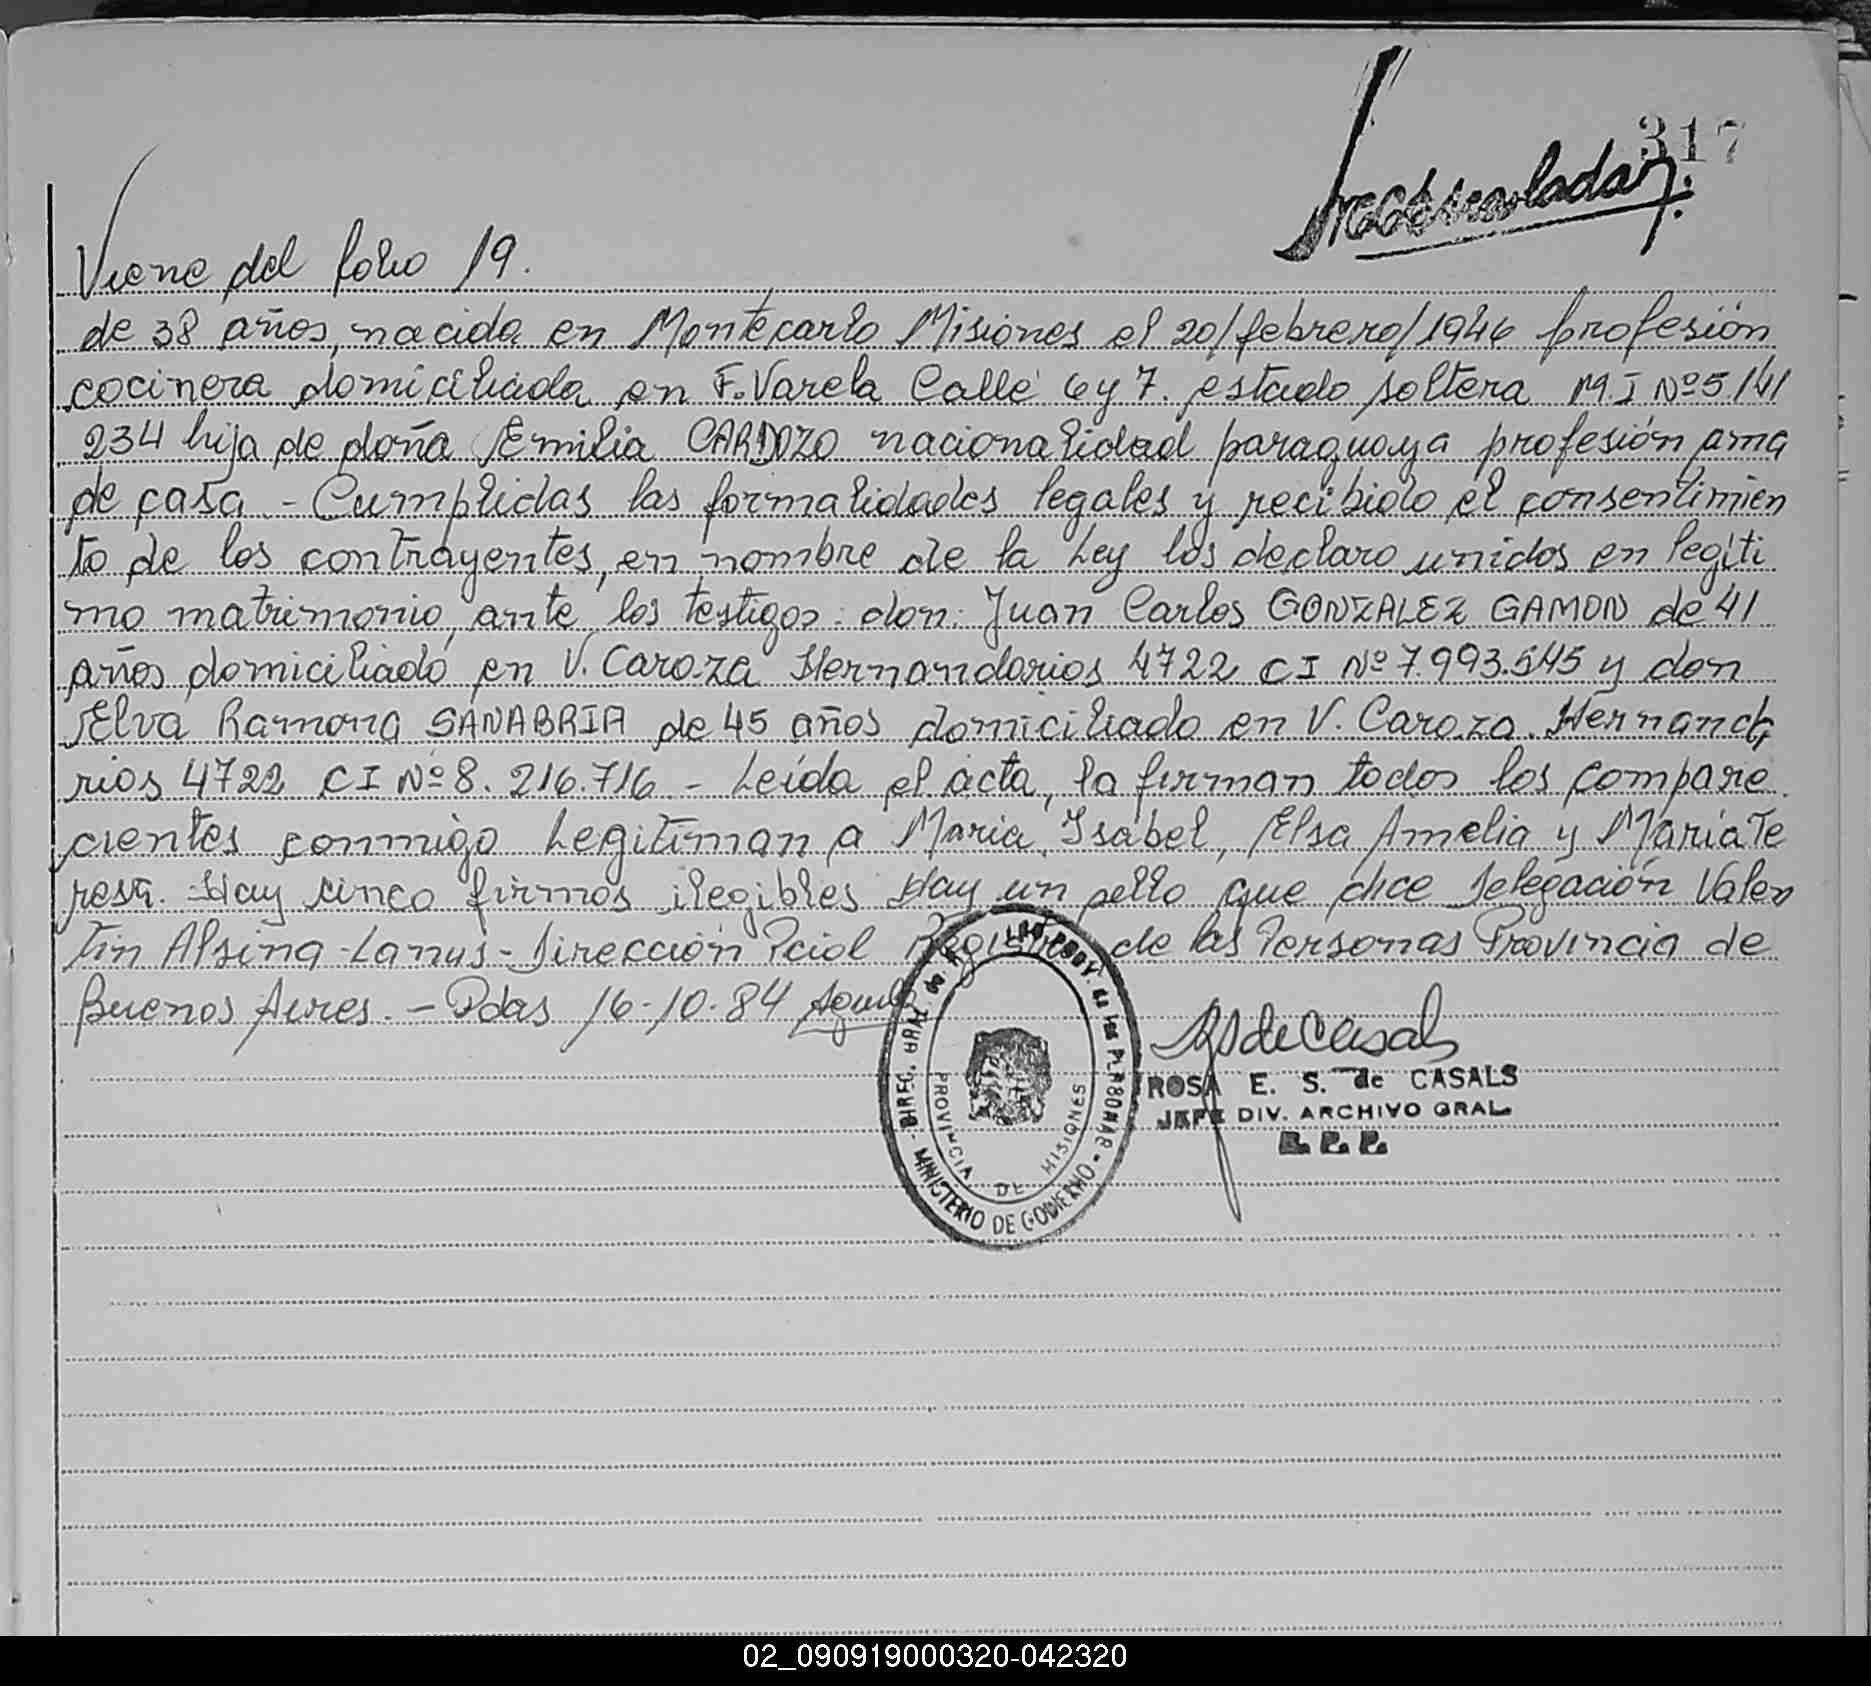 317
Viene del folio 19.
de 38 años, nacida en Montecarlo Misiones el 20/febrero/1946 profesión
cocinera domiciliada en F. Varela Calle 6 y 7. estado soltera M I Nº 5.141
234 hija de doña Emilia CARDOZO nacionalidad paraguaya profesión ama
de casa - Cumplidas las formalidades legales y recibido el consentimien
to de los contrayentes, en nombre de la Ley los declaro unidos en legíti
mo matrimonio, ante los testigos: don: Juan Carlos GONZALEZ GAMON de 41
años domiciliado en V. Caroza Hernandarios 4722 CI Nº 7.993.545 y don
Elva Ramona SANABRIA de 45 años domiciliado en V. Caroza. Hernanda
rios 4722 CI Nº 8. 216.716 - Leída el acta, la firman todos los compare
cientes conmigo Legitiman a Maria Isabel, Elsa Amelia y María Te
resa. Hay cinco firmas ilegibles Hay un sello que dice Delegación Valen
tin Alsina - Lanus - Dirección Pcial de las Personas Provincia de
Buenos Aires. - Pdas 16-10-84
DIREC. GRAL. de las PERSONAS - MINISTERIO DE GOBIERNO
PROVINCIA DE MISIONES
RS de Casals
ROSA E. S. de CASALS
JEFE DIV. ARCHIVO GRAL
R. P. P.
02_090919000320-042320